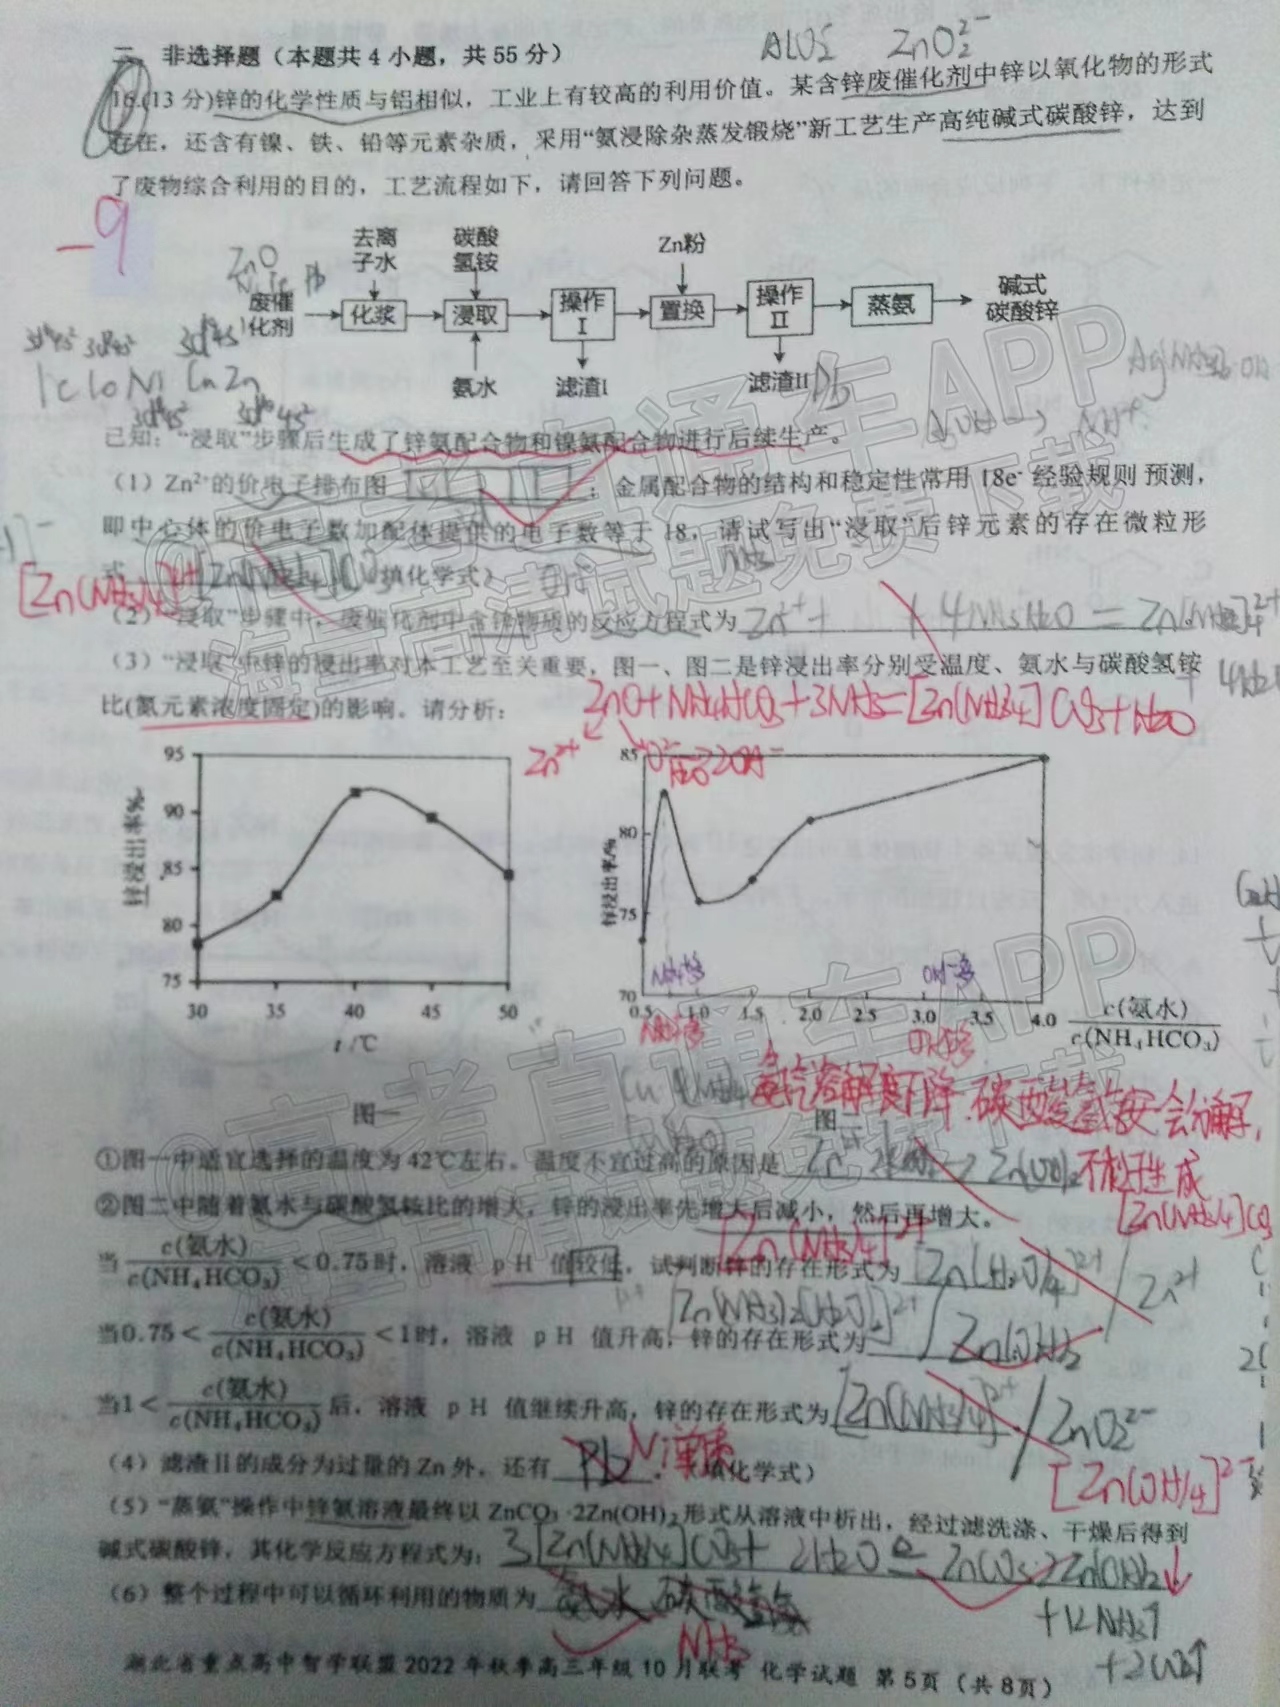 二、非选择题（本题共4小题，共55分）
AlO₂⁻ ZnO₂²⁻
16.(13分)锌的化学性质与铝相似，工业上有较高的利用价值。某含锌废催化剂中锌以氧化物的形式
存在，还含有镍、铁、铅等元素杂质，采用“氨浸除杂蒸发锻烧”新工艺生产高纯碱式碳酸锌，达到
了废物综合利用的目的，工艺流程如下，请回答下列问题。
-9
去离子水 碳酸氢铵 Zn粉
ZnO
Ni Fe Pb
废催化剂 化浆 浸取 操作Ⅰ 置换 操作Ⅱ 蒸氨 碱式碳酸锌
氨水 滤渣Ⅰ 滤渣Ⅱ Pb
已知：“浸取”步骤后生成了锌氨配合物和镍氨配合物进行后续生产。
（1）Zn²⁺的价电子排布图；金属配合物的结构和稳定性常用 18e⁻ 经验规则 预测，
即中心体的价电子数加配体提供的电子数等于 18，请试写出“浸取”后锌元素的存在微粒形
式 （填化学式）
[Zn(NH₃)₄]²⁺
（2）“浸取”步骤中，废催化剂中含锌物质的反应方程式为 Zn²⁺ + 4NH₃·H₂O = Zn(NH₃)₄]²⁺
+ 4H₂O
（3）“浸取”中锌的浸出率对本工艺至关重要，图一、图二是锌浸出率分别受温度、氨水与碳酸氢铵
比(氮元素浓度固定)的影响。请分析：
ZnO+NH₄HCO₃+3NH₃=[Zn(NH₃)₄]CO₃+H₂O
Zn²⁺ O²⁻ 2OH⁻
95 90 85 80 75
锌浸出率%
30 35 40 45 50
t /℃
图一
85 80 75 70
锌浸出率/%
NH₄⁺多 OH⁻多
0.5 1.0 1.5 2.0 2.5 3.0 3.5 4.0
c(氨水)/c(NH₄HCO₃)
图二
氨气溶解度下降，碳酸氢铵会分解，
①图一中适宜选择的温度为 42℃左右。温度不宜过高的原因是
不利于生成
[Zn(NH₃)₄]CO₃
②图二中随着氨水与碳酸氢铵比的增大，锌的浸出率先增大后减小，然后再增大。
[Zn(NH₃)₄]²⁺
当 c(氨水)/c(NH₄HCO₃) <0.75时，溶液 pH 值较低，试判断锌的存在形式为 [Zn(H₂O)₄]²⁺ / Zn²⁺
[Zn(NH₃)₂(H₂O)₂]²⁺
当0.75< c(氨水)/c(NH₄HCO₃) <1时，溶液 pH 值升高，锌的存在形式为 Zn(OH)₂
当1< c(氨水)/c(NH₄HCO₃) 后，溶液 pH 值继续升高，锌的存在形式为 [Zn(NH₃)₄]²⁺ / ZnO₂²⁻
[Zn(OH)₄]²⁻
（4）滤渣Ⅱ的成分为过量的 Zn 外，还有 Pb Ni单质 。（填化学式）
（5）“蒸氨”操作中锌氨溶液最终以 ZnCO₃·2Zn(OH)₂形式从溶液中析出，经过滤洗涤、干燥后得到
碱式碳酸锌，其化学反应方程式为: 3[Zn(NH₃)₄]CO₃+ 2H₂O = ZnCO₃·2Zn(OH)₂↓
+12NH₃↑
+2CO₂↑
（6）整个过程中可以循环利用的物质为 氨水 碳酸氢铵
NH₃
湖北省重点高中智学联盟 2022 年秋季高三年级 10 月联考 化学试题 第 5页（共 8页）
@高考直通车APP
海量高清试题免费下载
@高考直通车APP
海量高清试题免费下载